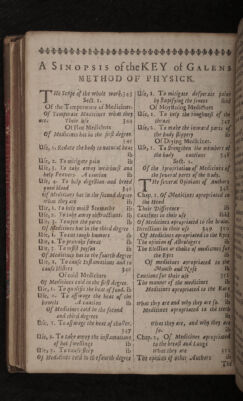 A SINOPSIS of the KEY of GALENS
METHOD OF PHYSICK.
THe Scope of the whole work 343
Sect. 1.
Of the Temperature of Medicines.
Of Temperate Medicines what they
are. Their use
Of Hot Medicines
Of Medicines hot in the first degree
Use, 1. Reduce the body to natural heat
ib
Use, 2. To mitigate pain ib
Use, 3. To take away weariness and
help Feavers. A caution ib
Use, 4. To help digestion and breed
good blood
Of Medicines hot in the second degree
what they are ib
Use, 1. To help moist Stomachs ib
Use, 2. To take away obstructions ib
Use, 3. To open the pores ib
Of Medicines hot in the third degree
Use, 1. To cut tough humors ib
Use, 2. To provoke sweat ib
Use, 3. To resist poyson ib
Of Medicines hot in the fourth degree
Use, 1. To cause Inflamations and to
cause blisters
Of cold Medicines
Of Medicines cold in the first degree.
Use, 1. To qualifie the heat of food. ib
Use, 2. To asswage the heat of the
bowels A caution ib
Of Medicines cold in the second
and third degrees
Use, 1. To asswage the heat of choller.
347
Use, 2. To take away the inflamations
of hot swellings ib
Use, 3. To cause sleep ib
Of Medicines cold in the fourth degree
Use, 1. To mitigate desperate pains
by stupifying the senses ibid
Of Moystning Medicines
Use, 1. To help the roughness of the
throat
Use, 2. To make the inward parts of
the body slippery ib
Of Drying Medicines.
Use, 1. To strengthen the members of
the body cautions 348
Sect. 2.
Of the Appropriation of Medicines to
the several parts of the body.
THe several Opinions of Authors
348
Chap. 1. Of Medicines appropriated to
the Head
Their Difference ib
Cautions in their use ibid
Of Medicines appropriated to the brain.
Directions in their use 349 350
Of Medicines appropriated to the Eyes
The opinion of Astrologers ib
The Election or choice of medicines for
the Eyes
Of medicines appropriated to the
Mouth and Nose ib
Cautions for their use ib
The manner of the medicines ib
Medicines appropriated to the Ears
ib
What they are and why they are so. ib
Medicines appropriated to the teeth
ib
What they are, and why they are
so. ib
Chap. 2. Of Medicines appropriated
to the breast and Lungs
What they are
The opinion of other Authors ib
The